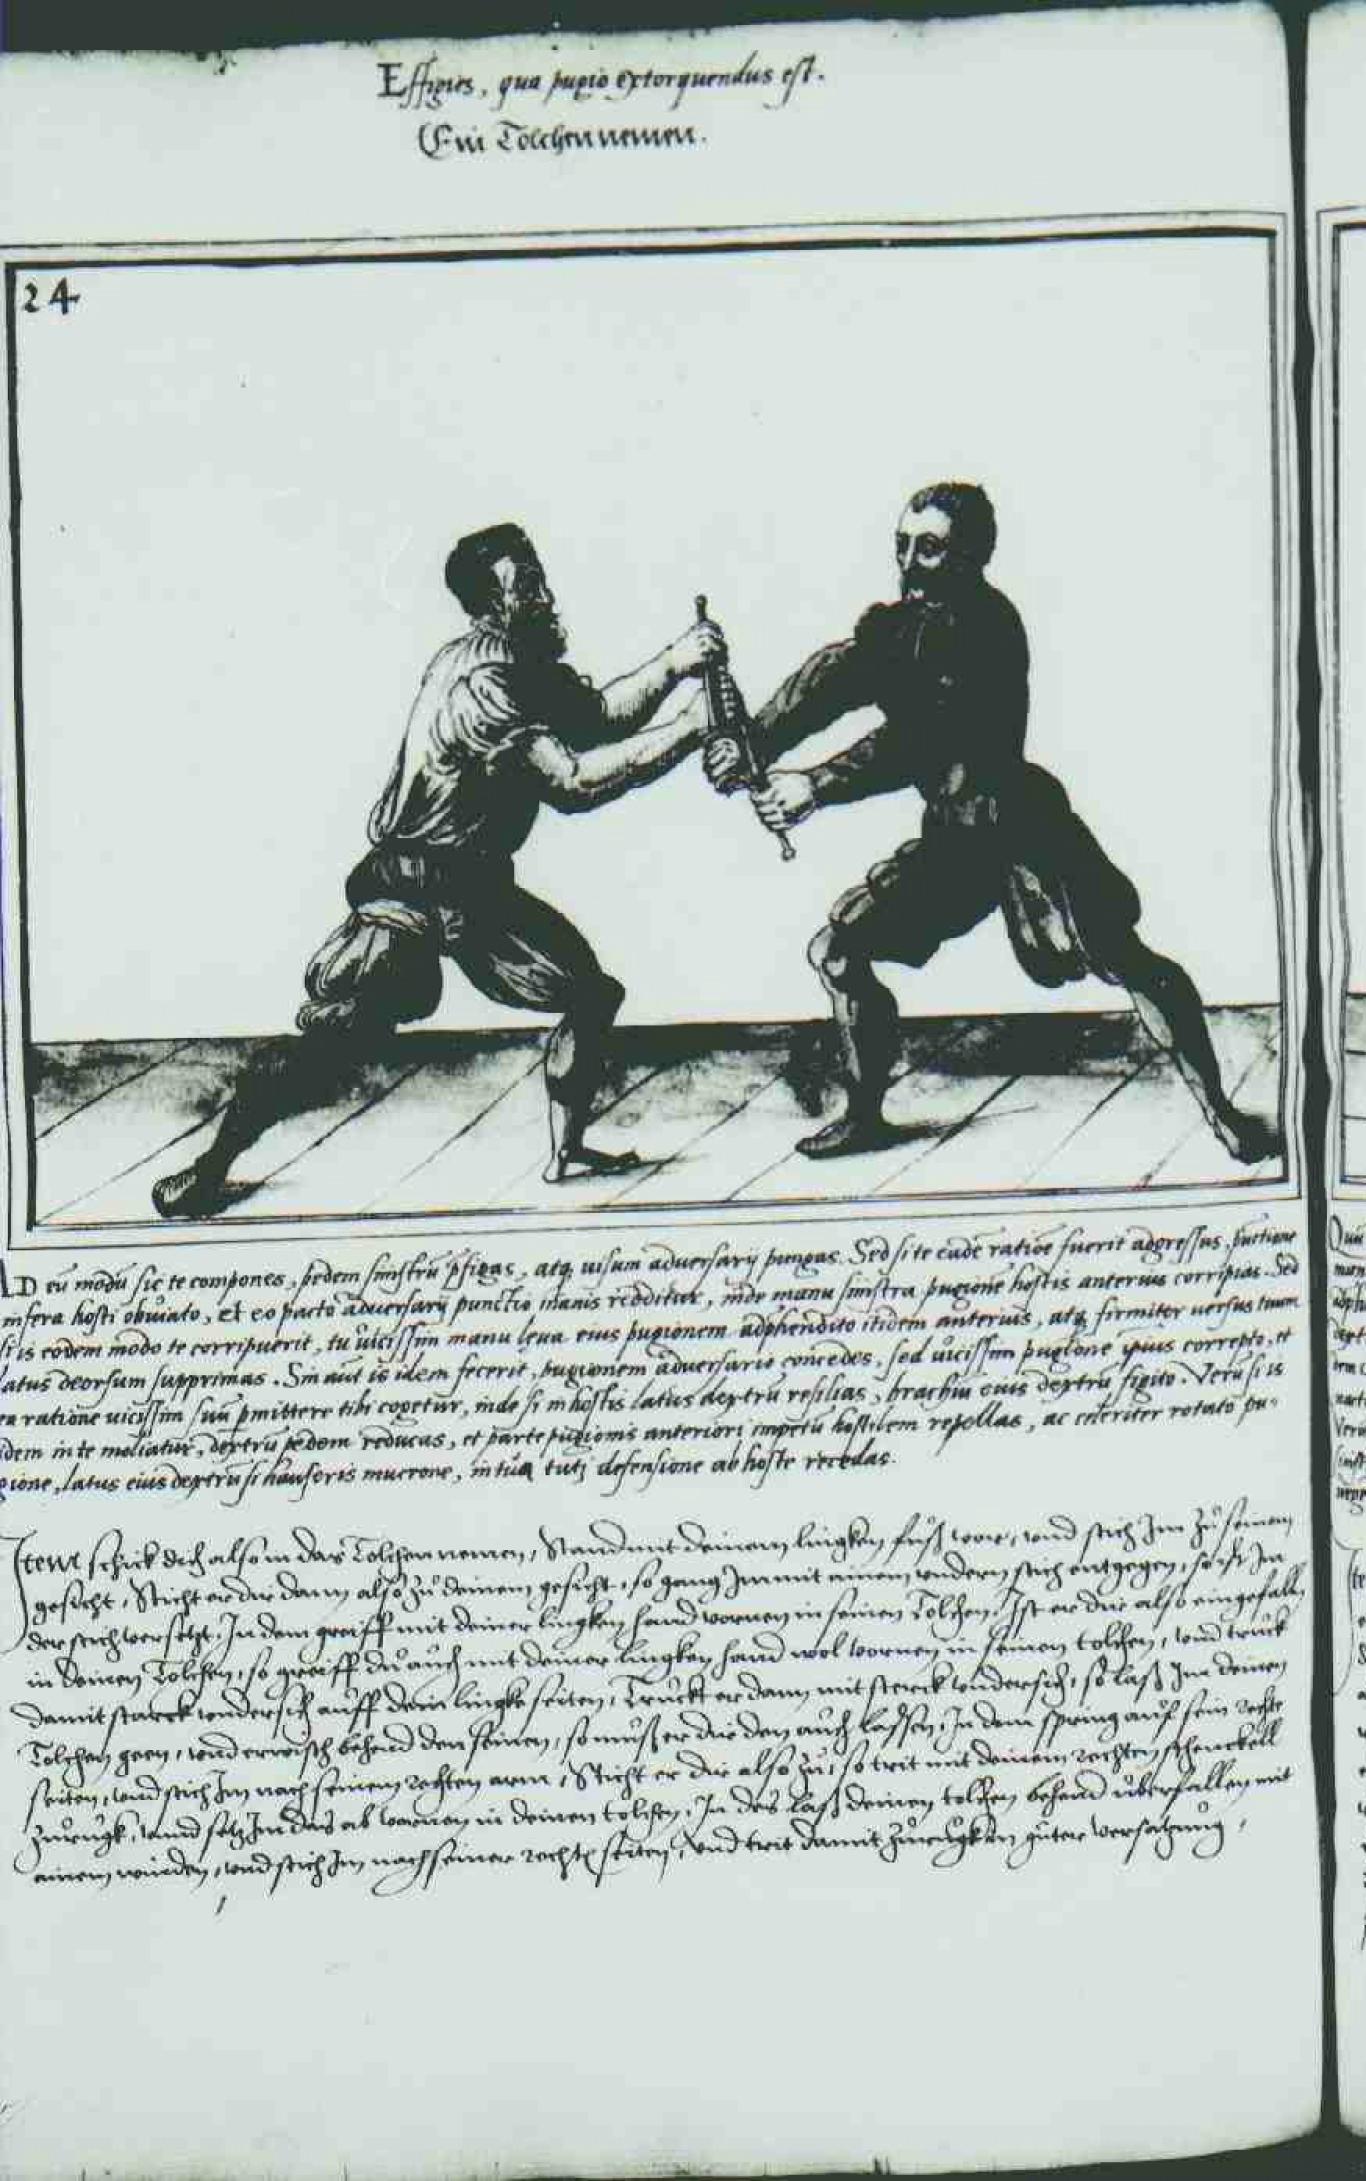 Effigies, qua pugio extorquendus est.
Ein Tolchen nemen.
24
AD eū modū sic te compones, pedem sinistrū pfigas, atq; uisum aduersarij pungas. Sed si te eadē ratiōe fuerit adgressus, punctione
infera hosti obuiato, et eo pacto aduersarij punctio inanis redditur, inde manu sinistra pugionē hostis anterius corripias. Sed
si is eodem modo te corripuerit, tu uicissim manu leua eius pugionem adphendito itidem anterius, atq; firmiter uersus tuum
latus deorsum supprimas. Sin aut is idem fecerit, pugionem aduersario concedes, sed uicissim pugione ipsius correpto, et
ea ratione uicissim suū pmittere tibi cogetur, inde si in hostis latus dextrū resilias, brachiū eius dextrū figito. Verū si is
idem in te moliatur, dextrū pedem reducas, et parte pugionis anteriori impetū hostilem repellas, ac celeriter rotato pu-
gione, latus eius dextrū si hauseris mucrone, in tua tuti defensione ab hoste recedas.
Item schick dich also in das Tolchen nemen, Stand mit deinem lingken fuß vor, vnd stich Im zů seinem
gesicht, Sticht er dir dann also zů deinem gesicht, so gang Im mit ainem vndern stich entgegen, so ist Im
der stich versetzt, In dem greiff mit deiner lingken hand vornen in seinen Tolchen, Ist er dir also eingefallen
in deinen Tolchen, so greiff du auch mit deiner lingken hand wol vornen in seinen tolchen, vnd truck
damit starck vndersich auff dein lingke seiten, Truckt er dann mit sterck vndersich, so laß Im deinen
Tolchen geen, vnd erwisch behend den seinen, so muß er dir den auch lassen, In dem spring auf sein rechte
seiten, vnd stich Im nach seinem rechten arm, Sticht er dir also zů, so trit mit deinem rechten schenckell
zůrugk, vnnd setz Im das ab vornen in deinen tolchen, In des laß deinen tolchen behend überfallen mit
ainem winden, vnd stich Im nach seiner rechten seiten, vnd trit damit zůrugk in gůter versatzung,